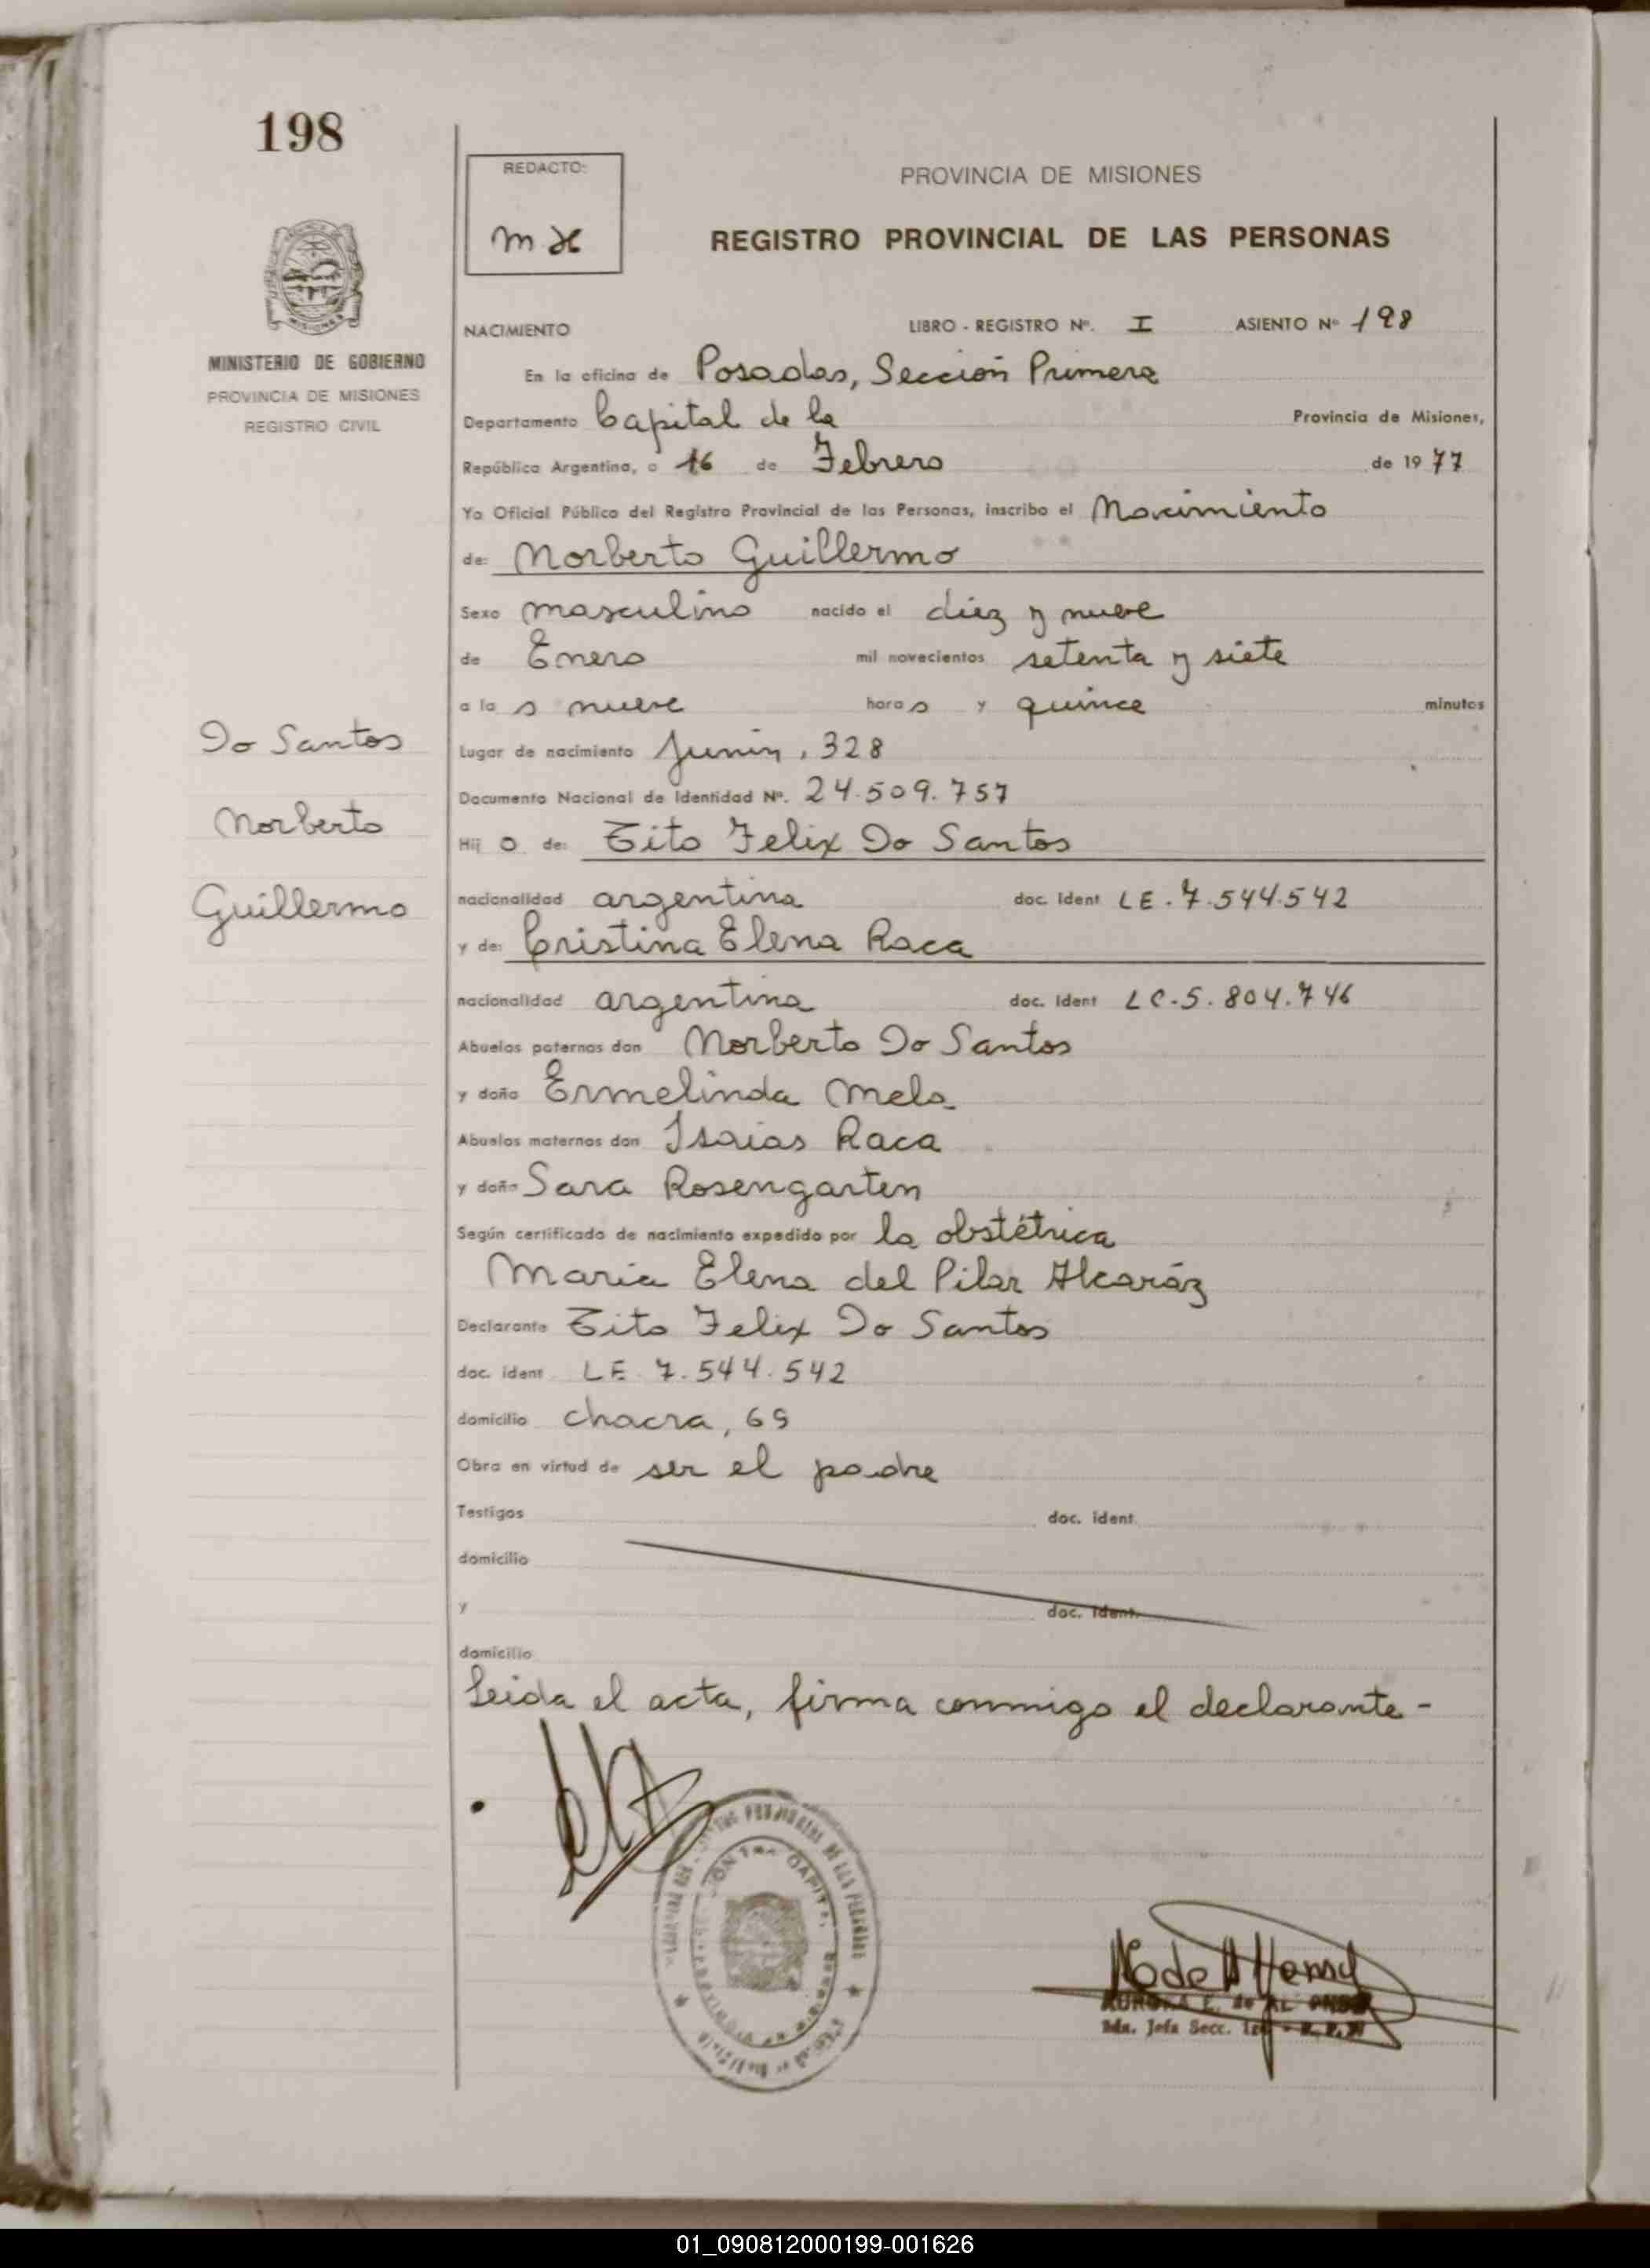 198
REDACTO:
PROVINCIA DE MISIONES
REGISTRO PROVINCIAL DE LAS PERSONAS
MISIONES
MINISTERIO DE GOBIERNO
PROVINCIA DE MISIONES
REGISTRO CIVIL
NACIMIENTO LIBRO - REGISTRO Nº. I ASIENTO Nº 198
En la oficina de Posadas, Sección Primera
Departamento Capital de la Provincia de Misiones,
República Argentina, a 16 de Febrero de 1977
Yo Oficial Público del Registro Provincial de las Personas, inscribo el Nacimiento
de: Norberto Guillermo
Sexo masculino nacido el diez y nueve
de Enero mil novecientos setenta y siete
a las nueve horas y quince minutos
Do Santos
Lugar de nacimiento Junín, 328
Documento Nacional de Identidad Nº. 24.509.757
Norberto
Hijo de: Tito Felix Do Santos
Guillermo
nacionalidad argentina doc. ident LE. 7.544.542
y de: Cristina Elena Raca
nacionalidad argentina doc. ident LC-5.804.746
Abuelos paternos don Norberto Do Santos
y doña Ermelinda Melo
Abuelos maternos don Isaias Raca
y doña Sara Rosengarten
Según certificado de nacimiento expedido por la obstétrica
Maria Elena del Pilar Alcaráz
Declarante Tito Felix Do Santos
doc. ident LE 7.544.542
domicilio chacra, 69
Obra en virtud de ser el padre
Testigos doc. ident.
domicilio
y doc. ident.
domicilio
Leida el acta, firma conmigo el declarante -
01_090812000199-001626